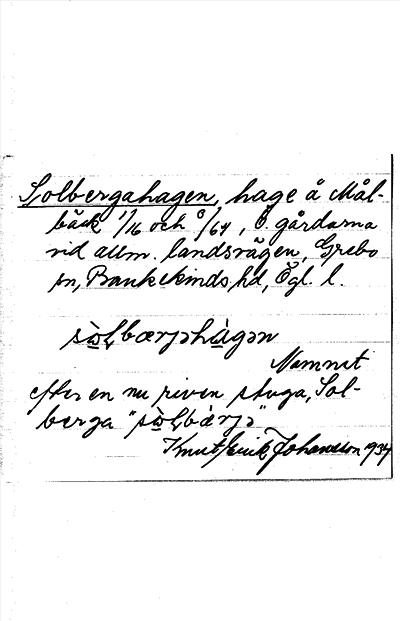 Solbergahagen, hage å Mål-
bäck 1/16 och /64, Ö. gårdarna
vid allm. landsvägen, Grebo
sn, Bankekinds hd, Ögl. l.
sò̱ḷbærjəhà̱gən
Namnet
efter en nu riven stuga, Sol-
berga "sò̱ḷbǽrjə"
Knut Erik Johansson 1934